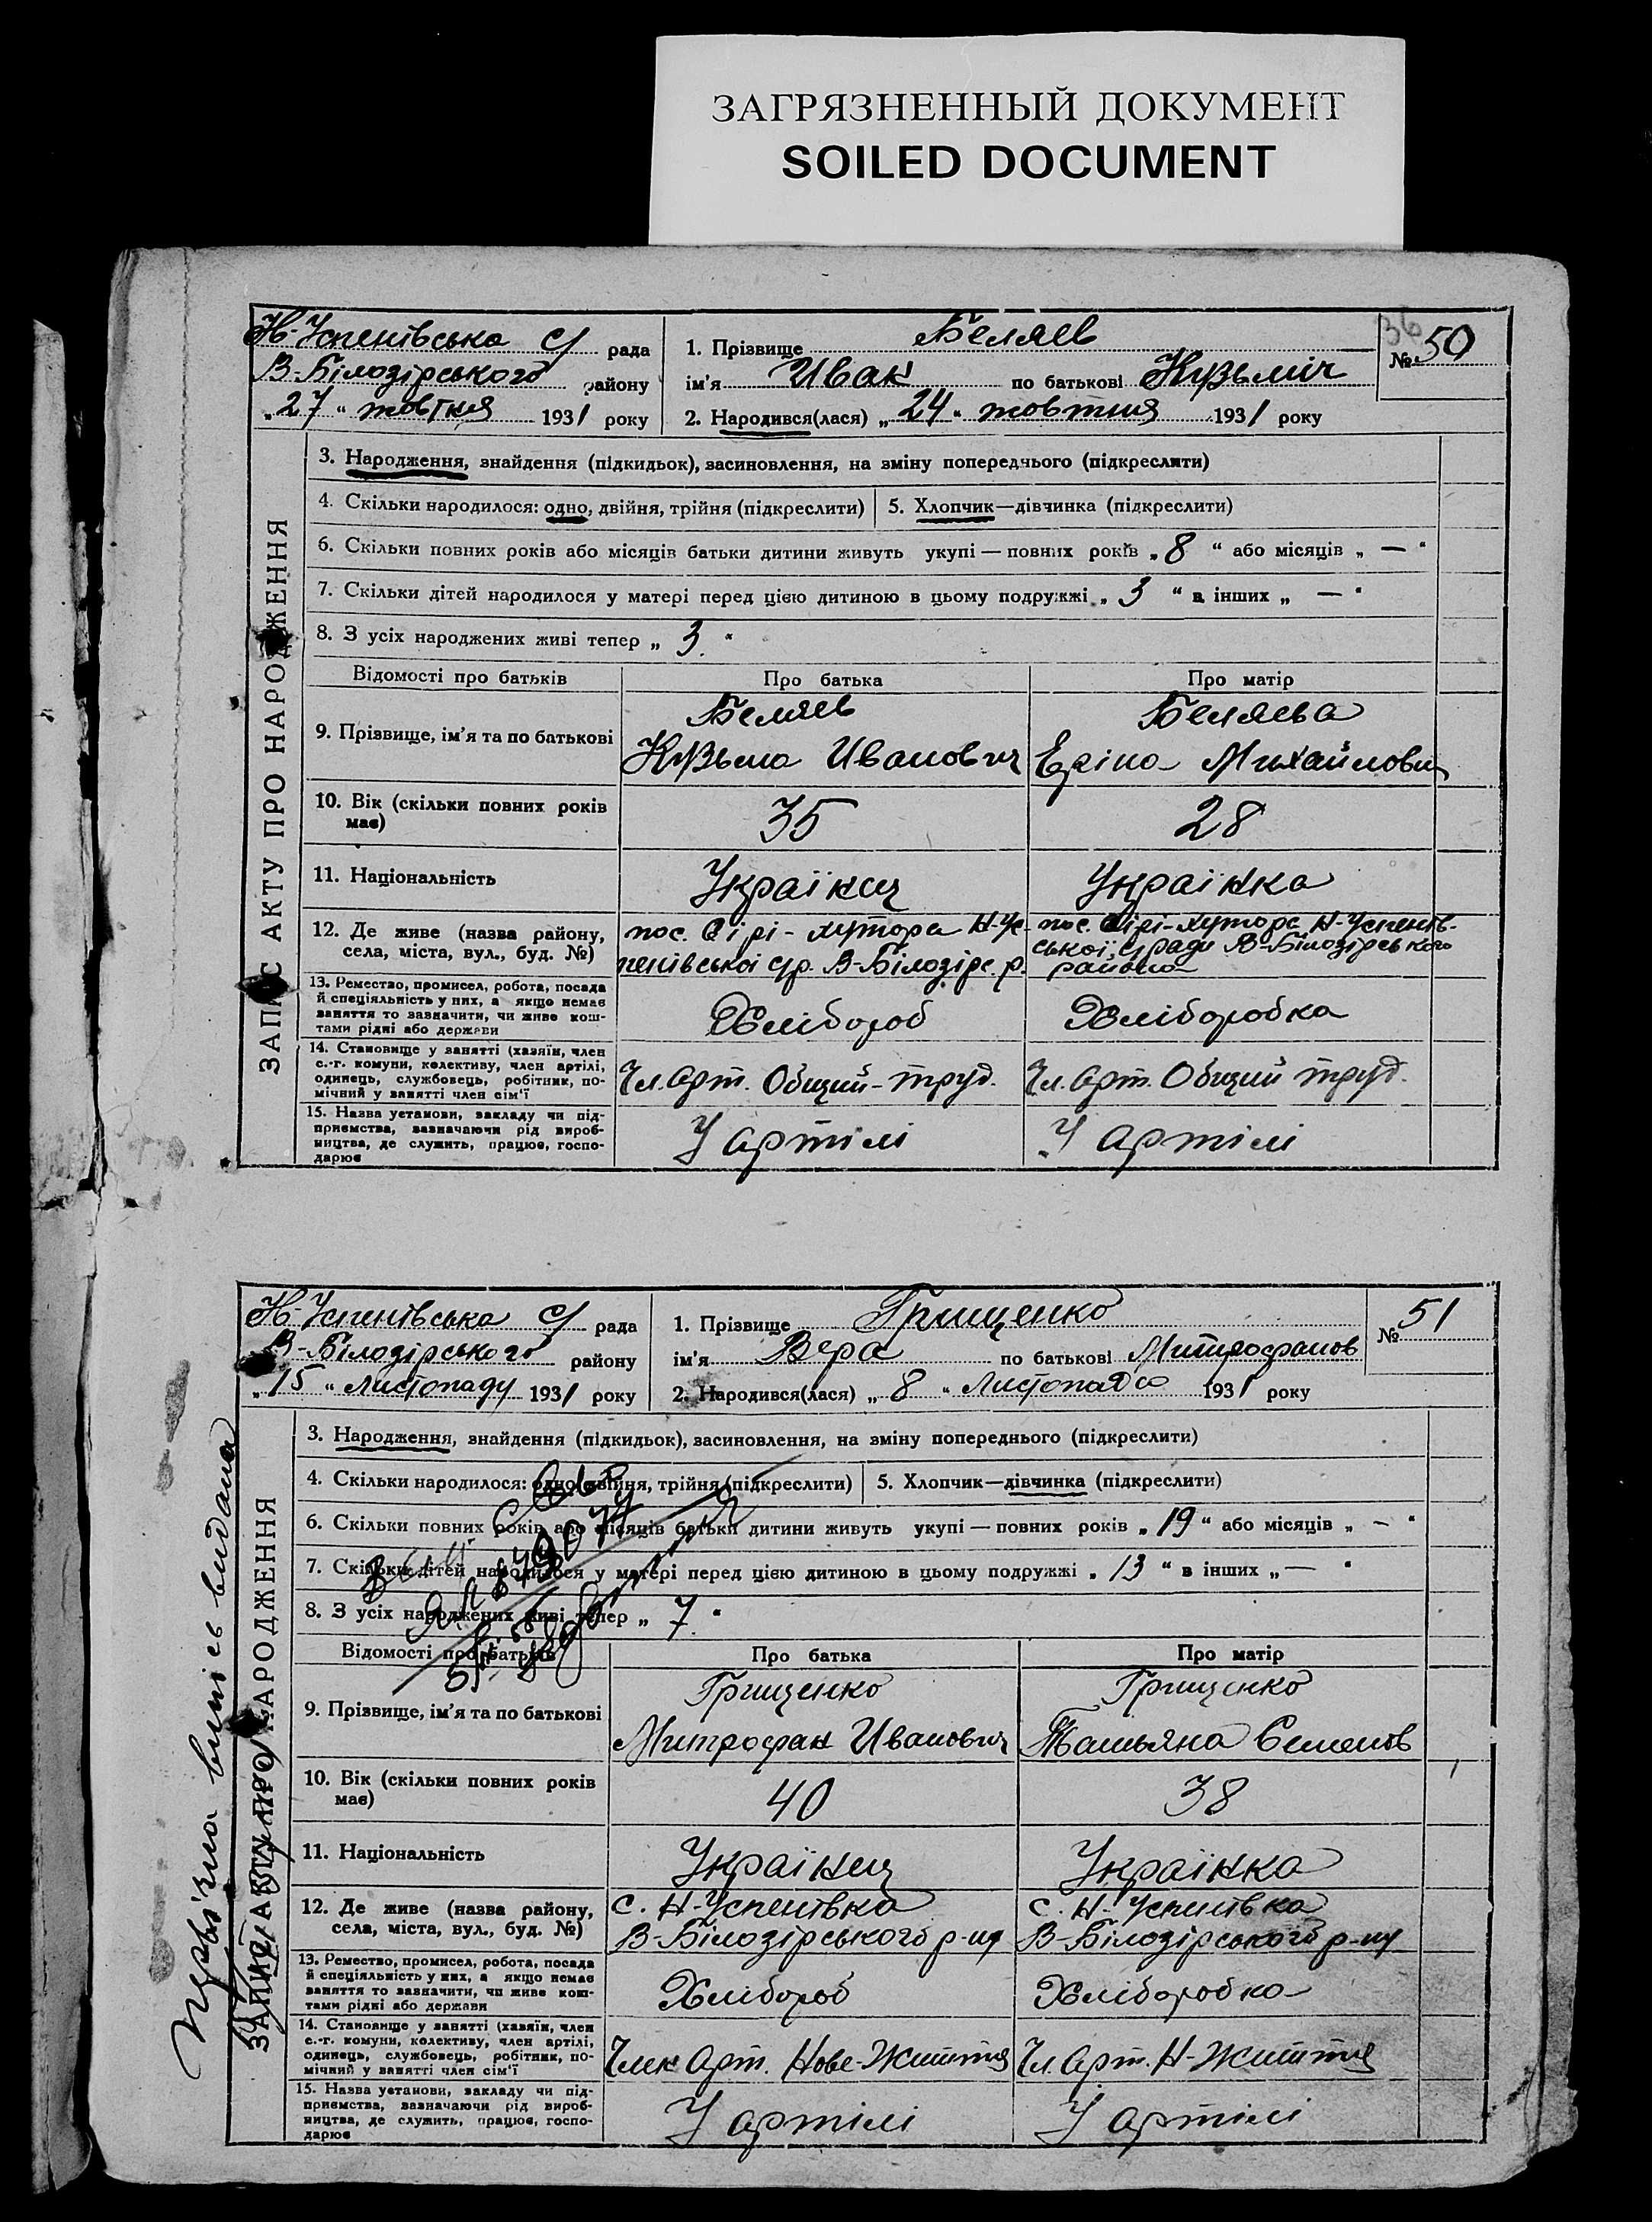 ЗАГРЯЗНЕННЫЙ ДОКУМЕНТ
SOILED DOCUMENT
36
Н-Успенівська с/ рада
В-Білозірського району
„27“ жовтня 1931 року
1. Прізвище Беляев
ім'я Иван по батькові Кузьміч
2. Народився(лася) „24“ жовтня 1931 року
№ 50
ЗАПИС АКТУ ПРО НАРОДЖЕННЯ
3. Народження, знайдення (підкидьок), засиновлення, на зміну попереднього (підкреслити)
4. Скільки народилося: одно, двійня, трійня (підкреслити) 5. Хлопчик—дівчинка (підкреслити)
6. Скільки повних років або місяців батьки дитини живуть укупі — повних років „8“ або місяців „—“
7. Скільки дітей народилося у матері перед цією дитиною в цьому подружжі „3“ в інших „—“
8. З усіх народжених живі тепер „3.“
Відомості про батьків Про батька Про матір
9. Прізвище, ім'я та по батькові
Беляев
Кузьма Иванович
Беляева
Еріна Михайлович
10. Вік (скільки повних років має) 35 28
11. Національність Українец Українка
12. Де живе (назва району,
села, міста, вул., буд. №)
пос. Сірі-хутора Н-Ус-
пенівської с/р. В-Білозірс. р.
пос. Сірі-хутора Н-Успенів-
ської с/ради В-Білозірського
района
13. Ремество, промисел, робота, посада
й спеціяльність у них, а якщо немає
заняття то зазначити, чи живе кош-
тами рідні або держави
Хлібороб Хліборобка
14. Становище у занятті (хазяїн, член
с.-г. комуни, колективу, член артілі,
одинець, службовець, робітник, по-
мічний у занятті член сім'ї
Чл. Арт. Общий-труд. Чл. Арт. Общий труд.
15. Назва установи, закладу чи під-
приємства, зазначаючи рід вироб-
ництва, де служить, працює, госпо-
дарює
У артілі У артілі
Н-Успенівська с/ рада
В-Білозірського району
„15“ Листопаду 1931 року
1. Прізвище Грищенко
ім'я Вера по батькові Митрофанов
2. Народився(лася) „8“ Листопада 1931 року
№ 51
ЗАПИС АКТУ ПРО НАРОДЖЕННЯ
видана
3. Народження, знайдення (підкидьок), засиновлення, на зміну попереднього (підкреслити)
4. Скільки народилося: одно, двійня, трійня (підкреслити) 5. Хлопчик—дівчинка (підкреслити)
6. Скільки повних років або місяців батьки дитини живуть укупі — повних років „19“ або місяців „—“
7. Скільки дітей народилося у матері перед цією дитиною в цьому подружжі „13“ в інших „—“
8. З усіх народжених живі тепер „7“
Відомості про батьків Про батька Про матір
9. Прізвище, ім'я та по батькові
Грищенко
Митрофан Иванович
Грищенко
Татьяна Семенов
10. Вік (скільки повних років має) 40 38
11. Національність Українец Українка
12. Де живе (назва району,
села, міста, вул., буд. №)
с. Н-Успенівка
В-Білозірського р-ну
с. Н-Успенівка
В-Білозірського р-ну
13. Ремество, промисел, робота, посада
й спеціяльність у них, а якщо немає
заняття то зазначити, чи живе кош-
тами рідні або держави
Хлібороб Хліборобка
14. Становище у занятті (хазяїн, член
с.-г. комуни, колективу, член артілі,
одинець, службовець, робітник, по-
мічний у занятті член сім'ї
Член Арт. Нове-Життя Чл. Арт. Н-Життя
15. Назва установи, закладу чи під-
приємства, зазначаючи рід вироб-
ництва, де служить, працює, госпо-
дарює
У артілі У артілі